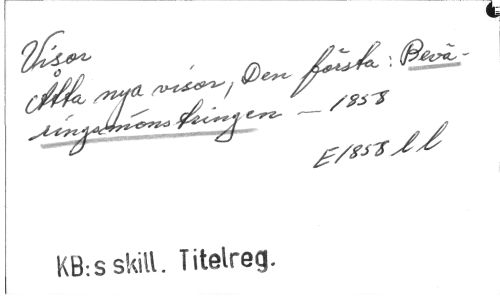 Visor
Åtta nya visor, Den första: Bevä-
ringsmönstringen — 1858
E1858 l l
KB:s skill. Titelreg.